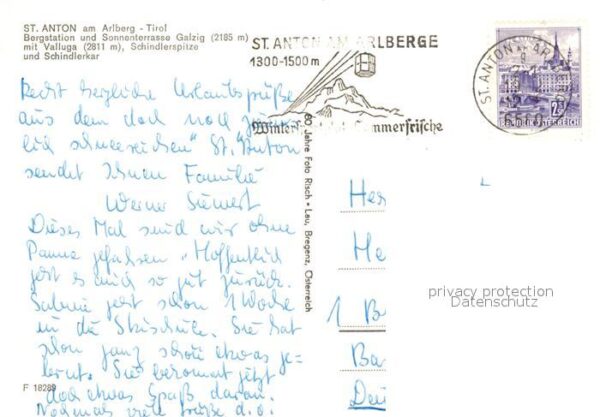 ST. ANTON am Arlberg - Tirol
Bergstation und Sonnenterrasse Galzig (2185 m)
mit Valluga (2811 m), Schindlerspitze
und Schindlerkar
ST. ANTON AM ARLBERGE
1300-1500 m
Wintersport Sommerfrische
ST. ANTON ARL
6580
REPUBLIK ÖSTERREICH
Recht herzliche Urlaubsgrüße
aus dem doch noch ziem
lich schneereichen" St. Anton
sendet Ihnen Familie
Werner Siewert
Dieses Mal sind wir ohne
Panne gefahren. Hoffentlich
geht es auch so gut zurück.
Sabine geht schon 1 Woche
in die Skischule. Sie hat
schon ganz schön etwas ge-
lernt. Sie bekommt jetzt
doch etwas Spaß daran.
Nochmals viele Grüße d.o.
60 Jahre Foto Risch • Lau, Bregenz, Österreich
Her
He
1 B
Ba
Deu
privacy protection
Datenschutz
F 18289